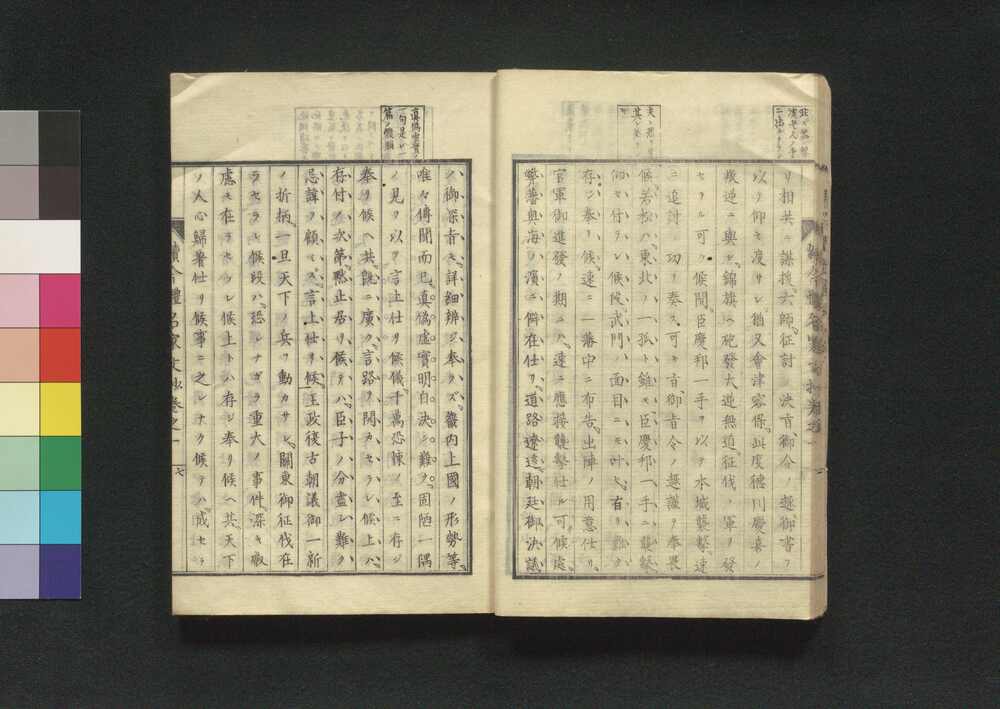 リ相共ニ謀援六師征討ノ決旨御令ノ趣御書ヲ
以テ仰セ渡サレ猶又會津容保此度德川慶喜ノ
叛逆ニ與シ錦旗ヘ砲發大逆無道征伐ノ軍ヲ發
セラル可ク候間臣慶邦一手ヲ以テ本城襲擊速
ニ追討ノ功ヲ奏ス可キ旨御旨令ノ趣謹テ奉畏
候若松ハ東北ノ一孤ト雖モ臣慶邦一手ニ襲擊
仰セ付ラレ候段武門ノ面目ニモ叶ヘ有リ難ク
存ジ奉リ候速ニ一藩中ニ布告出陣ノ用意仕リ
官軍御進發ノ期ニハ速ニ應援襲擊仕ル可ク候處
弊藩奧海ノ濱ニ僻在仕リ道路遼遠朝廷御決議
ノ御深旨モ詳細辨ジ奉ラズ畿内上國ノ形勢等
唯々傳聞而已眞僞虛實明白決シ難ク固陋一隅
ノ見ヲ以テ言上仕リ候儀千萬恐悚ノ至ニ存ジ
奉リ候ヘ共既ニ廣ク言路ヲ開カセラレ候上ハ
存付ノ次第默止居リ候テハ臣子ノ分盡シ難ク
忌諱ヲ顧ミズ言上仕リ候王政復古朝議御一新
ノ折柄一旦天下ノ兵ヲ動カサレ關東御征伐在
ラセラレ候段ハ恐レナガラ重大ノ事件深キ叡
慮モ在ラセラレ候上トハ存ジ奉リ候ヘ共天下
ノ人心歸著仕リ候事ニ之レナク候テハ成セラ
眞僞虛實ノ
一句是レ一
篇ノ機頭
續今體名家文抄卷之一
七